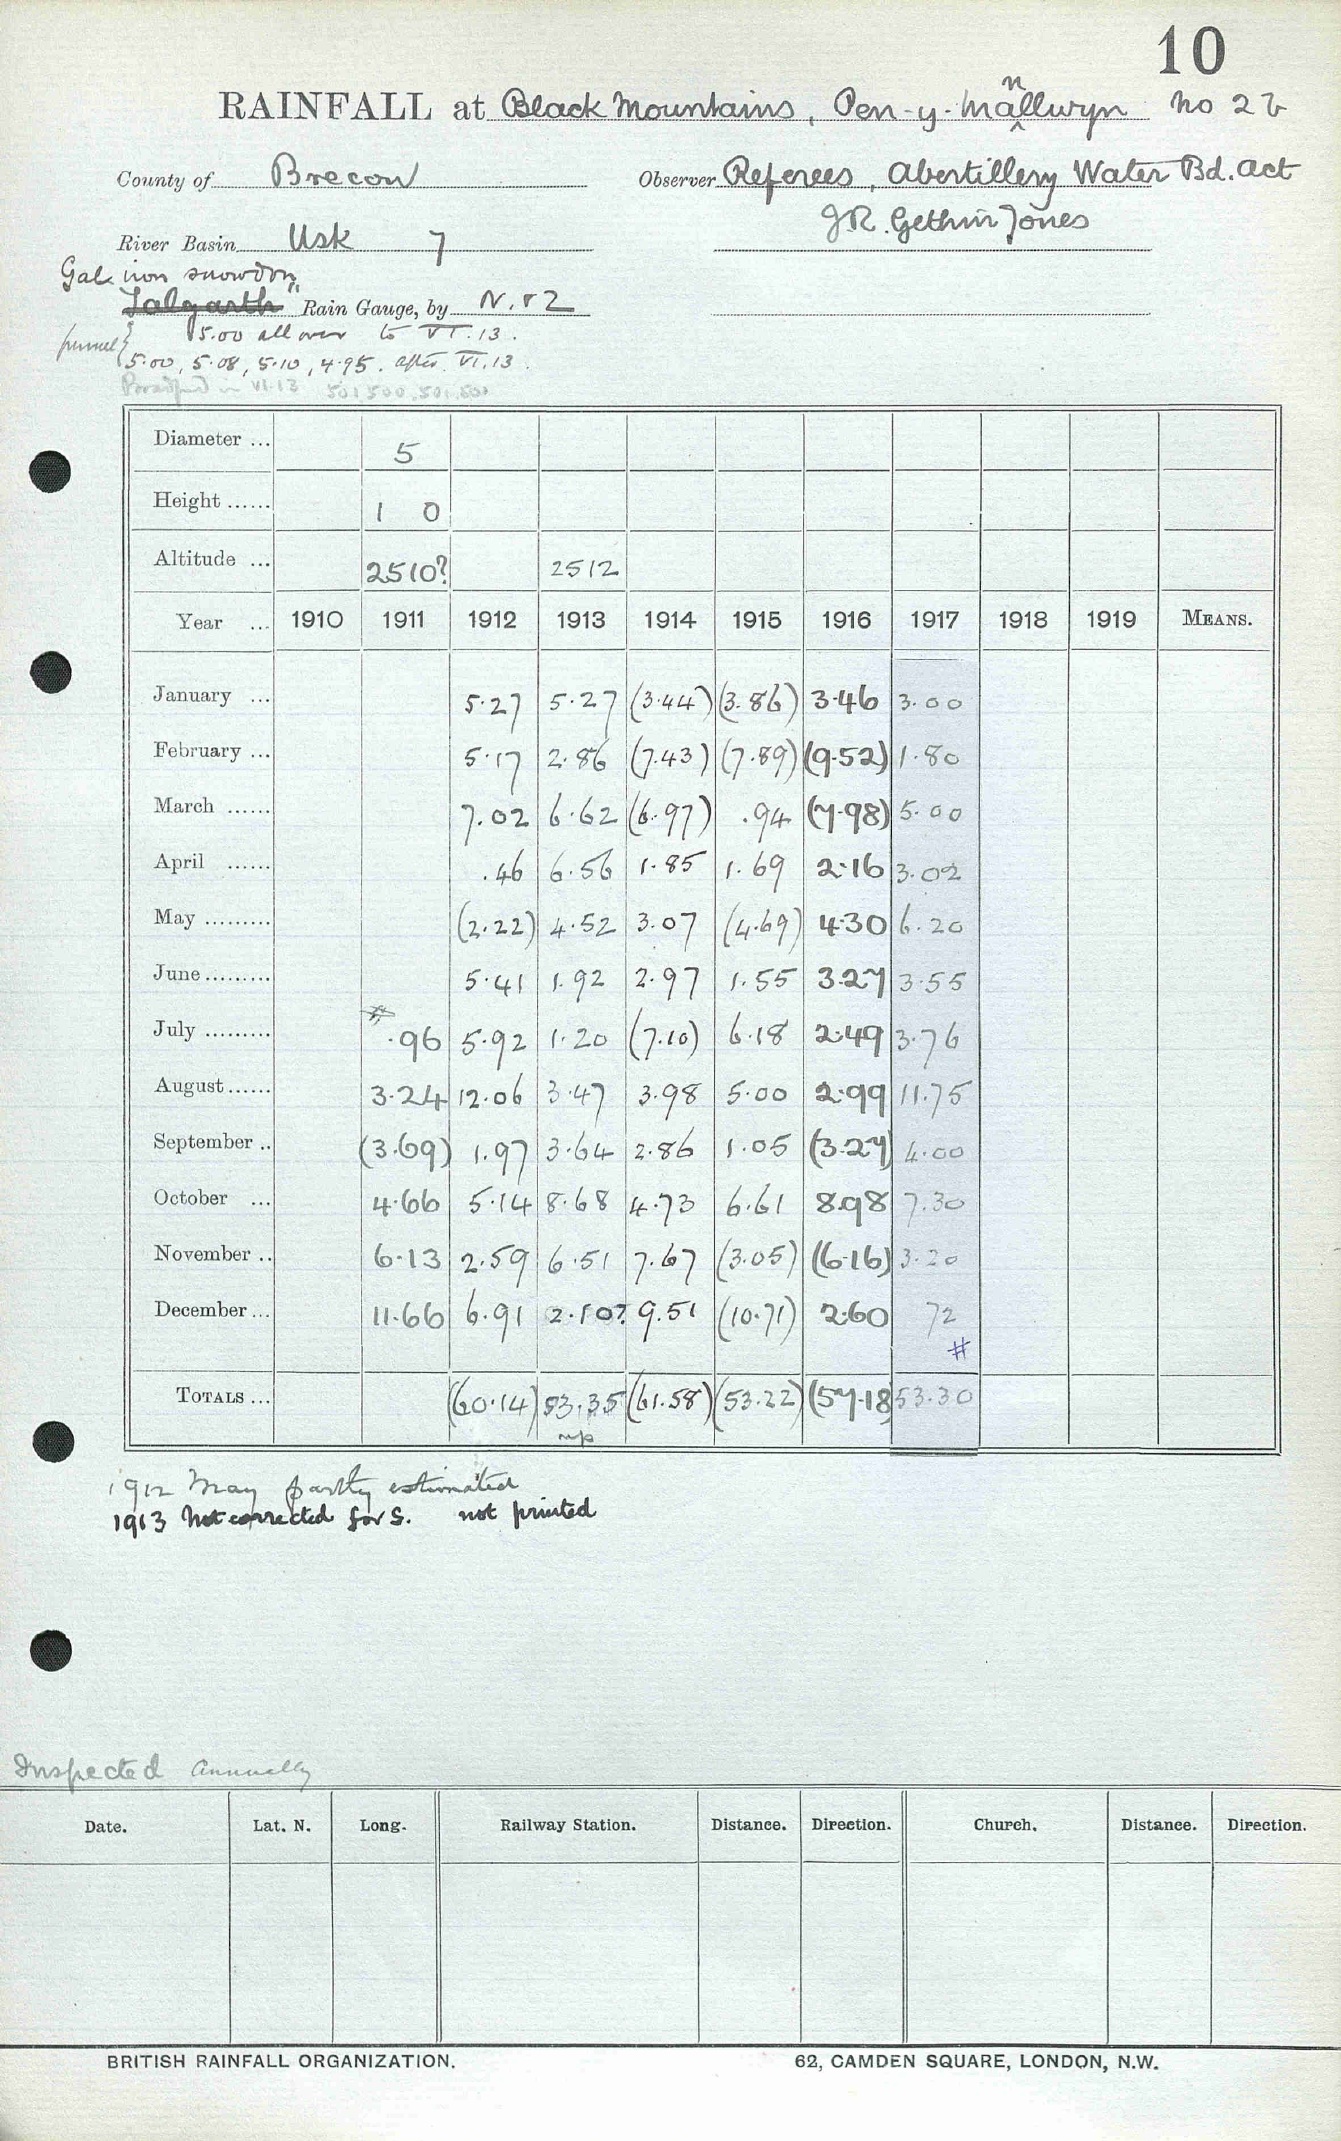 10
RAINFALL at Black Mountains, Pen-y-Manllwyn No 2b
County of Brecon Observer Referees, Abertillery Water Bd. Act
River Basin Usk 7 J R. Gethin Jones
Gal iron snowdon
Talgarth Rain Gauge, by N. & Z
funnel { 5.00 all over to VI.13.
5.00, 5.08, 5.10, 4.95. after VI.13.
in VI.13 501, 500, 501, 500
Diameter ... 5
Height ...... 1 0
Altitude ... 2510? 2512
Year ... 1910 1911 1912 1913 1914 1915 1916 1917 1918 1919 MEANS.
January ... 5.27 5.27 (3.44) (3.86) 3.46 3.00
February ... 5.17 2.86 (7.43) (7.89) (9.52) 1.80
March ...... 7.02 6.62 (6.97) .94 (7.98) 5.00
April ...... .46 6.56 1.85 1.69 2.16 3.02
May ......... (2.22) 4.52 3.07 (4.69) 4.30 6.20
June ......... 5.41 1.92 2.97 1.55 3.27 3.55
July ......... # .96 5.92 1.20 (7.10) 6.18 2.49 3.76
August ...... 3.24 12.06 3.47 3.98 5.00 2.99 11.75
September .. (3.69) 1.97 3.64 2.86 1.05 (3.27) 4.00
October ... 4.66 5.14 8.68 4.73 6.61 8.98 7.30
November .. 6.13 2.59 6.51 7.67 (3.05) (6.16) 3.20
December ... 11.66 6.91 2.10? 9.51 (10.71) 2.60 72
#
TOTALS ... (60.14) 53.35 (61.58) (53.22) (57.18) 53.30
n/p
1912 May partly estimated
1913 Not corrected for S. not printed
Inspected annually
Date. Lat. N. Long. Railway Station. Distance. Direction. Church. Distance. Direction.
BRITISH RAINFALL ORGANIZATION. 62, CAMDEN SQUARE, LONDON, N.W.